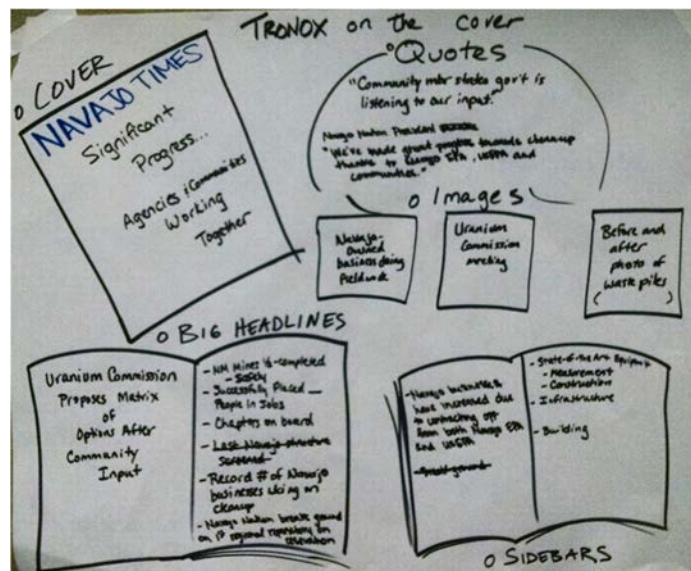 TRONOX on the cover
o COVER
NAVAJO TIMES
Significant
Progress...
Agencies & Communities
Working
Together
o Quotes
"Community mbr states gov't is
listening to our input."
Navajo Nation President
"We've made great progress towards cleanup
thanks to Navajo EPA, USEPA and
communities."
o Images
Navajo-
owned
business doing
fieldwork
Uranium
Commission
meeting
Before and
after
photo of
waste piles
( )
o BIG HEADLINES
Uranium Commission
Proposes Matrix
of
Options After
Community
Input
- NM Mines is completed
- Safely
- Successfully Placed __
People in Jobs
- Chapters on board
- Last Navajo structure
- Record # of Navajo
businesses on
cleanup
- Navajo Nation break ground
on 1st regional repository on
reservation
- Navajo businesses
have increased due
to contracting opp
from both Navajo EPA
and USEPA
- State-of-the-Art Equipment
- Measurement
- Construction
- Infrastructure
- Building
o SIDEBARS